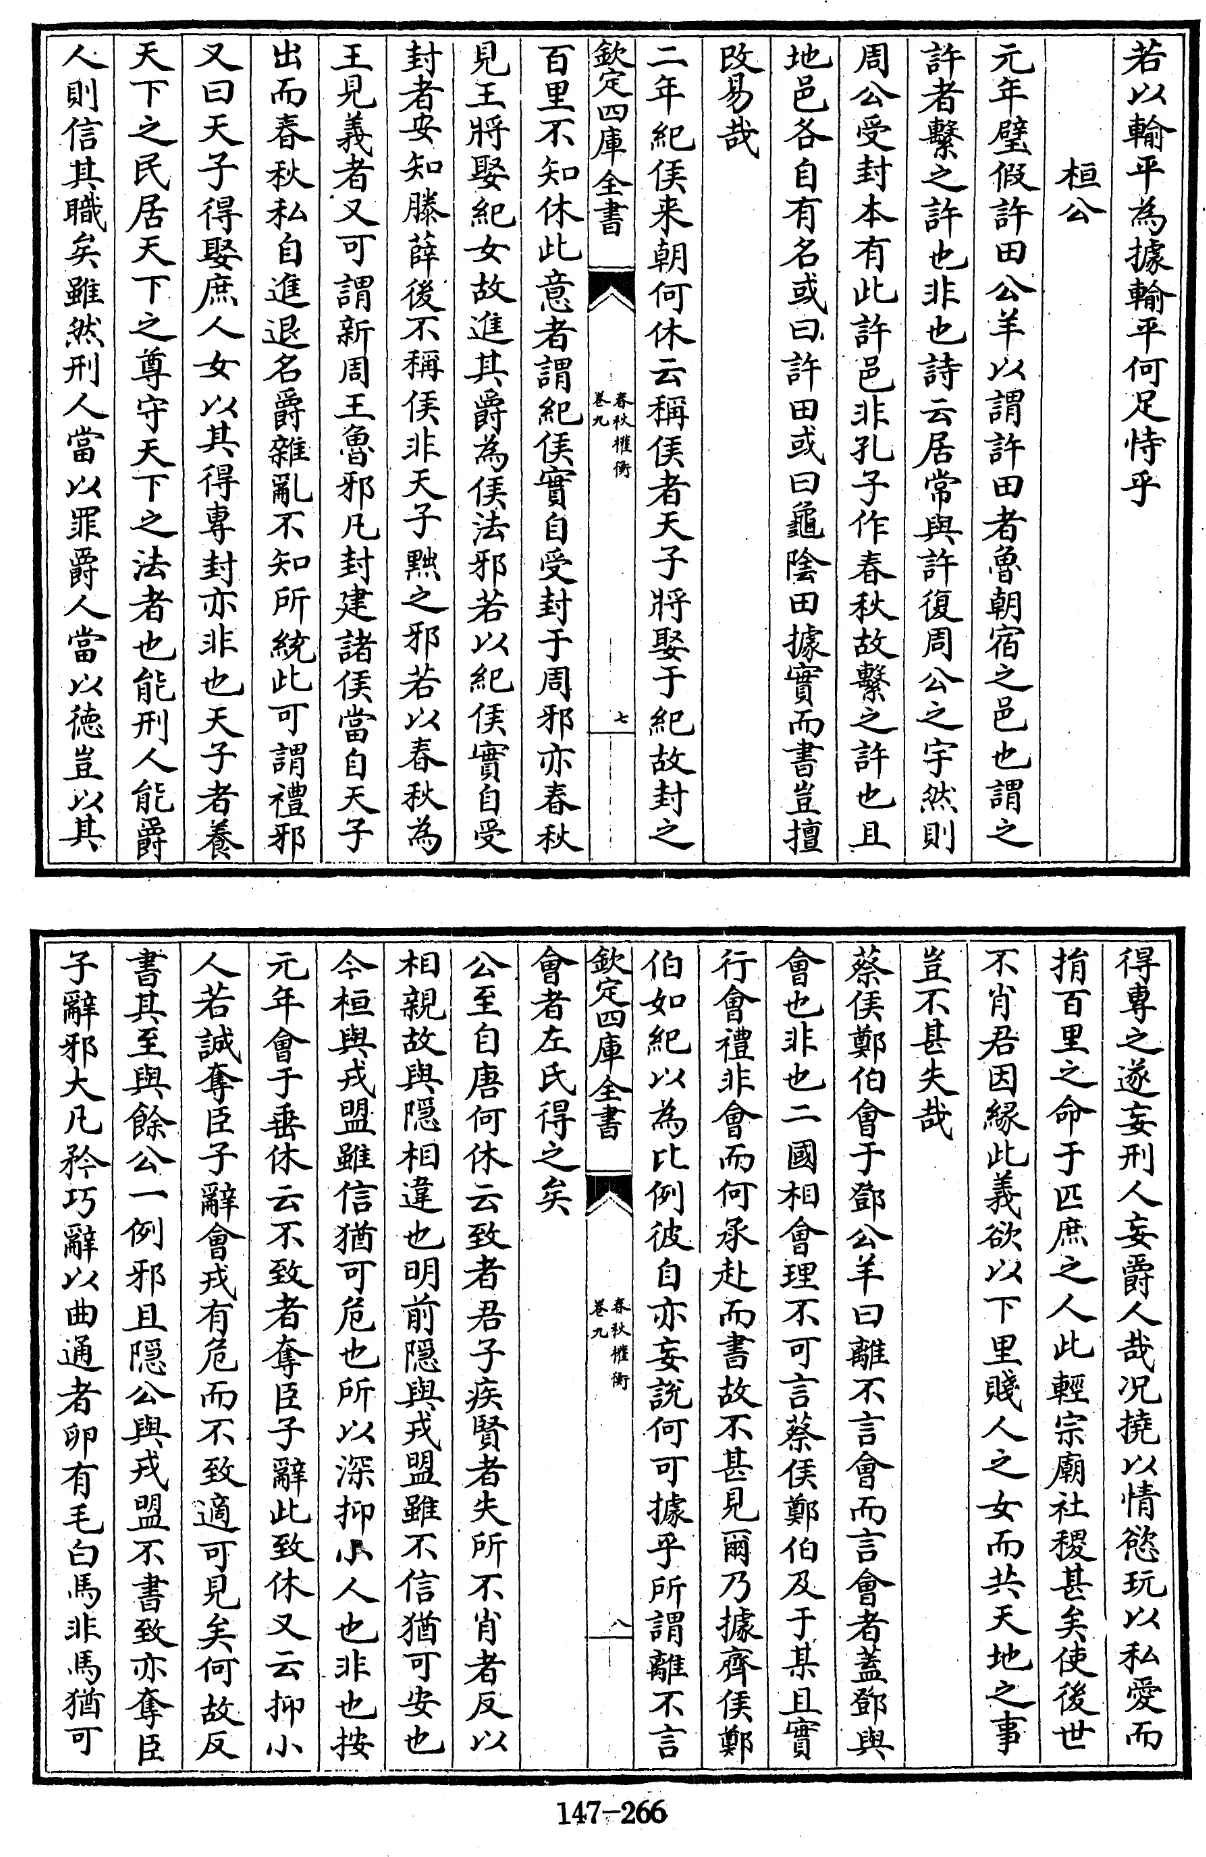 若以輸平為據輸平何足恃乎
桓公
元年璧假許田公羊以謂許田者魯朝宿之邑也謂之
許者繫之許也非也詩云居常與許復周公之宇然則
周公受封本有此許邑非孔子作春秋故繫之許也且
地邑各自有名或曰許田或曰龜陰田據實而書豈擅
改易哉
二年紀侯来朝何休云稱侯者天子將娶于紀故封之
欽定四庫全書
春秋權衡
卷九
七
百里不知休此意者謂紀侯實自受封于周邪亦春秋
見王將娶紀女故進其爵為侯法邪若以紀侯實自受
封者安知滕薛後不稱侯非天子黜之邪若以春秋為
王見義者又可謂新周王魯邪凡封建諸侯當自天子
出而春秋私自進退名爵雜亂不知所統此可謂禮邪
又曰天子得娶庶人女以其得專封亦非也天子者養
天下之民居天下之尊守天下之法者也能刑人能爵
人則信其職矣雖然刑人當以罪爵人當以徳豈以其
得專之遂妄刑人妄爵人哉况撓以情慾玩以私愛而
揹百里之命于匹庶之人此輕宗廟社稷甚矣使後世
不肖君因緣此義欲以下里賤人之女而共天地之事
豈不甚失哉
蔡侯鄭伯會于鄧公羊曰離不言會而言會者蓋鄧與
會也非也二國相會理不可言蔡侯鄭伯及于某且實
行會禮非會而何承赴而書故不甚見爾乃據齊侯鄭
伯如紀以為比例彼自亦妄說何可據乎所謂離不言
欽定四庫全書
春秋權衡
卷九
八
會者左氏得之矣
公至自唐何休云致者君子疾賢者失所不肖者反以
相親故與隠相違也明前隠與戎盟雖不信猶可安也
今桓與戎盟雖信猶可危也所以深抑小人也非也按
元年會于垂休云不致者奪臣子辭此致休又云抑小
人若誠奪臣子辭會戎有危而不致適可見矣何故反
書其至與餘公一例邪且隠公與戎盟不書致亦奪臣
子辭邪大凡矜巧辭以曲通者卵有毛白馬非馬猶可
147-266